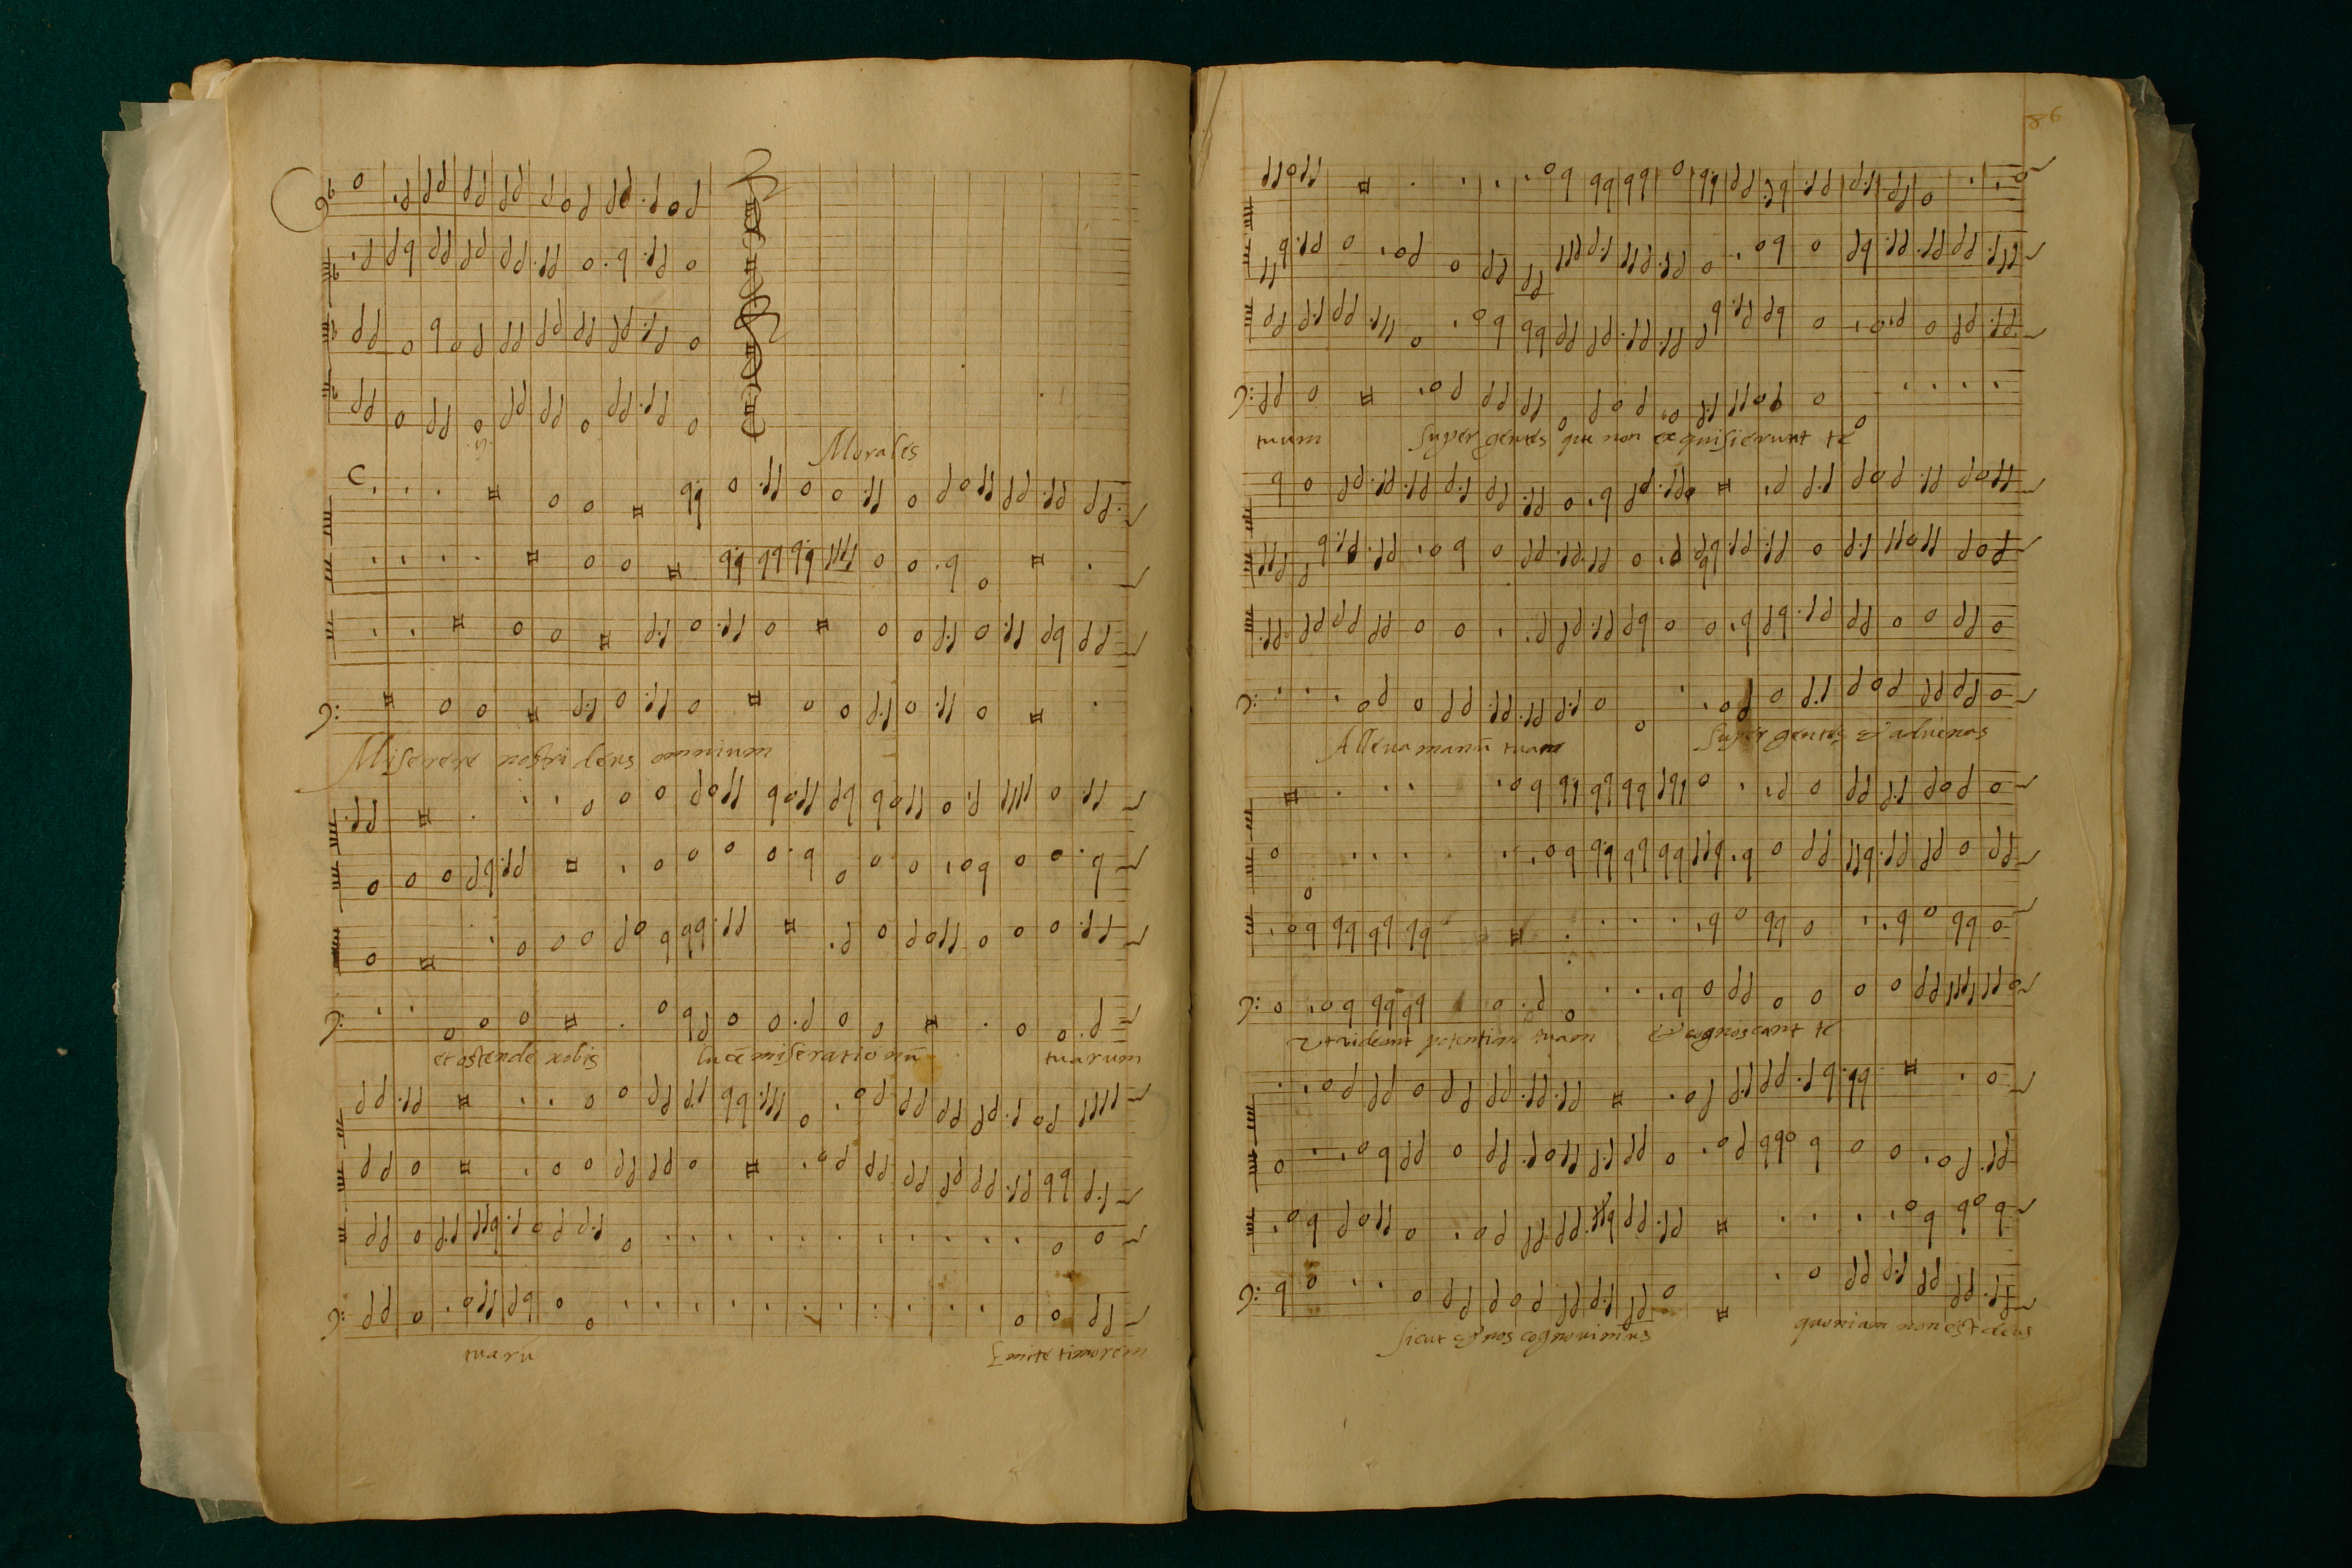 ij
Morales
Miserere nostri deus omnium
et ostende nobis lucē miserationū tuarum
tuarū Emite timorem
86
tuum super gentes que non exquisierunt te
Alleva manū tuam super gentes & alienas
Ut videant potentiam tuam & cognoscant te
sicut & nos cognovimus quoniam non est deus